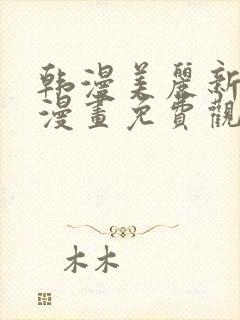 韩漫美麗新
漫畫免費觀
木木